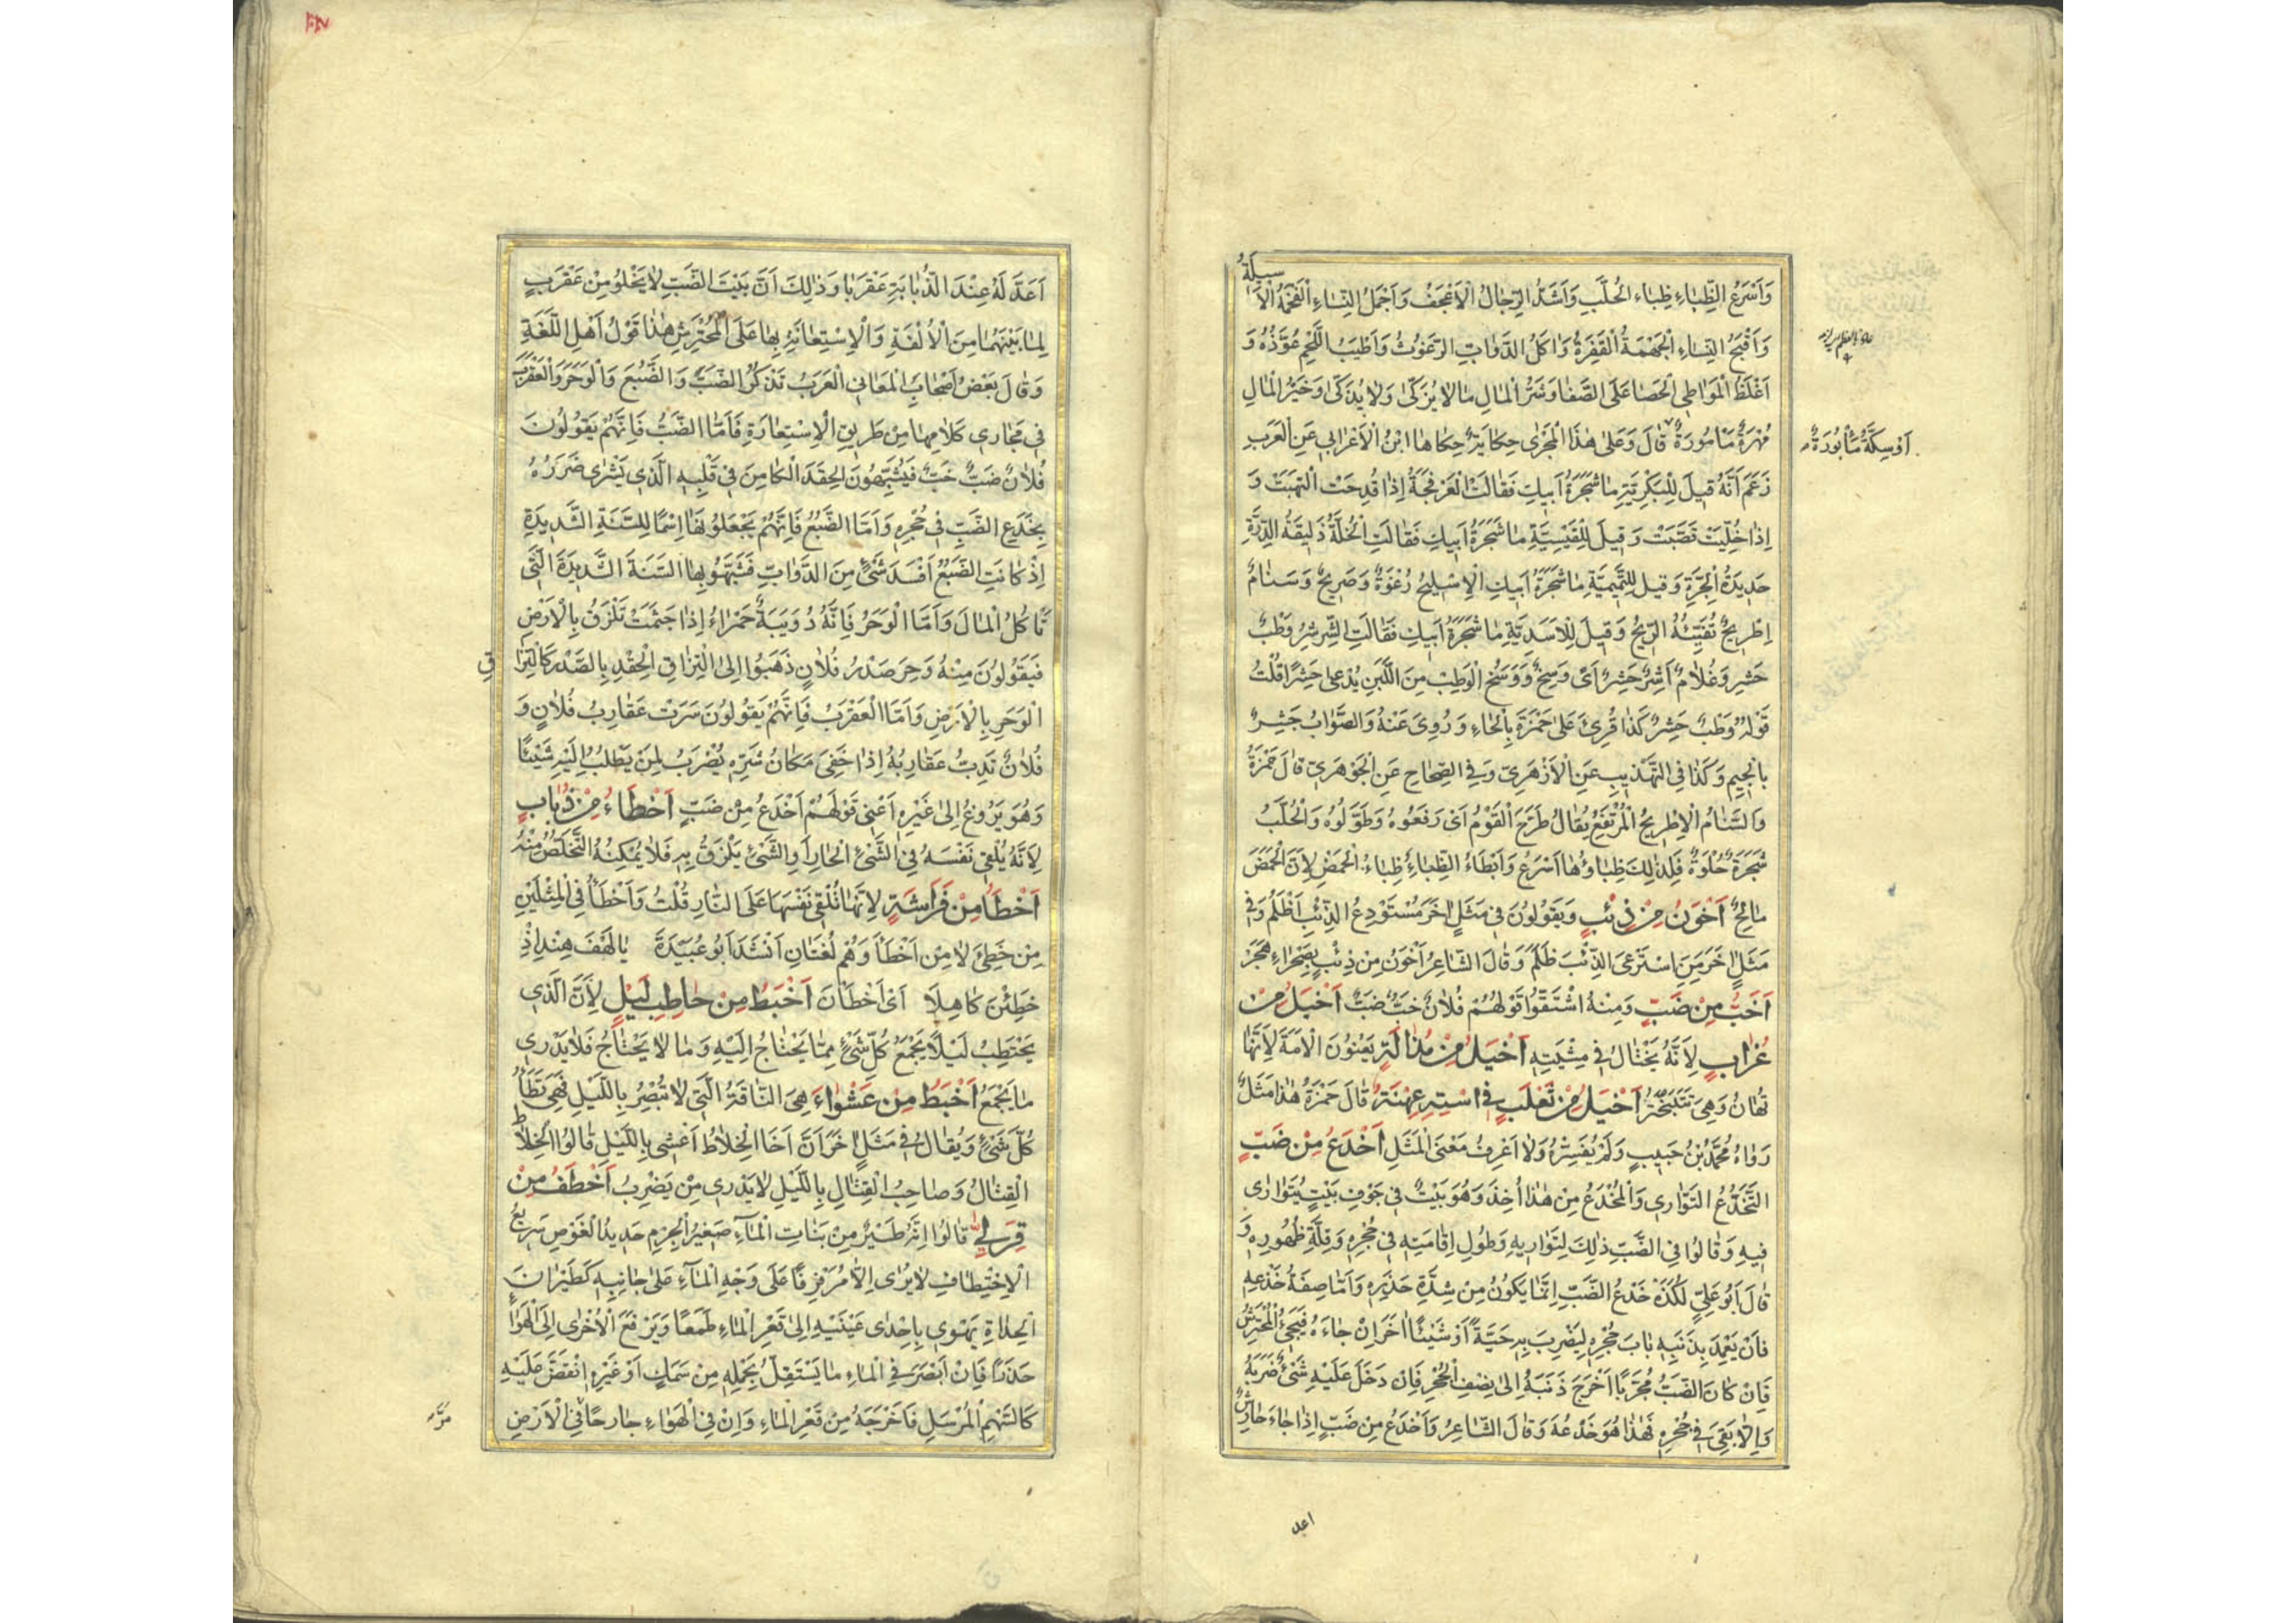 سيلة
وَاَسْرَعُ الظِّبَاءِ ظِبَاء الحُلَّبِ وَاَشَدُّ الرِّجَالُ الْاَعْجَفُ وَاَجْمَلُ النِّسَاءِ الْفَخْمَةُ الْاَ
وَاَقْبَحُ النِّسَاءِ الْجَهْمَةُ الْقَفِرَةُ وَاٰكَلُ الدَّوَابِّ الرَّغُوثُ وَاَطْيَبُ اللَّحْمِ عُوَّذُهُ وَ
اَغْلَظُ الْمَوَاطِئِ الْحَصَا عَلَى الصَّفَا وَشَرُّ الْمَالِ مَا لَا يُزَكّٰى وَلَا يُذَكّٰى وَخَيْرُ الْمَالِ
مُهْرَةٌ مَأْمُورَةٌ قَالَ وَعَلٰى هٰذَا الْمَجْرٰى حِكَايَةٌ حَكَاهَا ابْنُ الْاَعْرَابِي عَنِ الْعَرَبِ
اَوْ سِكَّةٌ مَأْبُورَةٌ
زَعَمَ اَنَّهُ قِيلَ لِلْبَكْرِيَّةِ مَا شَجَرَةُ اَبِيكِ فَقَالَتْ الْعَرْفَجَةُ اِذَا قُدِحَتْ الْتَهَبَتْ وَ
اِذَا خُلِّيَتْ قَصَّبَتْ وَقِيلَ لِلْقَيْسِيَّةِ مَا شَجَرَةُ اَبِيكِ فَقَالَتِ الْخُلَّةُ ذَلِيقَةُ الدِّرَّةِ
حَدِيدَةُ الْجِرَّةِ وَقِيلَ لِلتَّمِيمِيَّةِ مَا شَجَرَةُ اَبِيكِ الْاِسْلِيحُ رُغْوَةٌ وَصَرِيحٌ وَسَنَامٌ
اِطْرِيحٌ تُفَيِّئُهُ الرِّيحُ وَقِيلَ لِلْاَسَدِيَّةِ مَا شَجَرَةُ اَبِيكِ فَقَالَتِ الشِّرْشِرُ وَطْبٌ
حَشِر وَغُلَامٌ اَشِرٌ حَشِرٌ اَىْ وَسِخٌ وَوَسَخُ الْوَطْبِ مِنَ اللَّبَنِ يُدْعٰى حَشَرًا قُلْتُ
قَوْلُهُ وَطْبٌ حَشِرٌ كَذَا قُرِئَ عَلٰى حَمْزَةَ بِالْحَاءِ وَرُوِىَ عَنْهُ وَالصَّوَابُ جَشِرٌ
بالجيم وَكَذَا فِى التَّهْذِيبِ عَنِ الْاَزْهَرِىّ وَفِى الصِّحَاحِ عَنِ الْجَوْهَرِىّ قَالَ حَمْزَةُ
وَالسَّنَامُ الْاِطْرِيحُ الْمُرْتَفِعُ يُقَالُ طَرَّحَ الْقَوْمُ اَىْ رَفَعُوهُ وَطَوَّلُوهُ وَالْحُلَّبُ
شَجَرَةٌ حُلْوَةٌ فَلِذٰلِكَ ظِبَاؤُهَا اَسْرَعُ وَاَبْطَاءُ الظِّبَاءِ ظِبَاءُ الْحَمْضِ لِاَنَّ الْحَمْضَ
مَالِحٌ اَخْوَنُ مِنْ ذِئْبٍ وَيَقُولُونَ فِى مَثَلٍ اٰخَرَ مُسْتَوْدِعُ الذِّئْبِ اَظْلَمُ وَفِى
مَثَلٍ اٰخَرَ مَنِ اسْتَرْعَى الذِّئْبَ ظَلَمَ وَقَالَ الشَّاعِرُ اَخْوَنُ مِنْ ذِئْبٍ بِصَحْرَاءِ هَجَرْ
اَخَبُّ مِنْ ضَبٍّ وَمِنْهُ اشْتَقُّوا قَوْلَهُمْ فُلَانٌ خَبٌّ ضَبٌّ اَخْيَلُ مِنْ
غُرَابٍ لِاَنَّهُ يَخْتَالُ فِى مِشْيَتِهِ اَخْيَلُ مِنْ مُذَالَةٍ يَعْنُونَ الْاَمَةَ لِاَنَّهَا
تُهَانُ وَهِىَ تَتَبَخْتَرُ اَخْيَلُ مِنْ ثَعْلَبٍ فِى اسْتِهِ عِهْنَةٌ قَالَ حَمْزَةُ هٰذَا مَثَلٌ
رَوَاهُ مُحَمَّدُ بْنُ حَبِيبٍ وَلَمْ يُفَسِّرْهُ وَلَا اَعْرِفُ مَعْنَى الْمَثَلِ اَخْدَعُ مِنْ ضَبٍّ
التَّخَدُّعُ التَّوَارِى وَالْمُخْدَعُ مِنْ هٰذَا اُخِذَ وَهُوَ بَيْتٌ فِى جَوْفِ بَيْتٍ يُتَوَارٰى
فِيهِ وَقَالُوا فِى الضَّبِّ ذٰلِكَ لِتَوَارِيهِ وَطُولِ اِقَامَتِهِ فِى جُحْرِهِ وَقِلَّةِ ظُهُورِهِ وَ
قَالَ اَبُو عَلِىٍّ لُكْذَةُ خَدْعُ الضَّبِّ اِنَّمَا يَكُونُ مِنْ شِدَّةِ حَذَرِهِ وَاَمَّا صِفَةُ خَدْعِهِ
فَاَنْ يَعْمِدَ بِذَنَبِهِ بَابَ جُحْرِهِ لِيَضْرِبَ بِهِ حَيَّةً اَوْ شَيْئًا اٰخَرَ اِنْ جَاءَهُ فَيَجِىْءُ الْمُحْتَرِشُ
فَاِنْ كَانَ الضَّبُّ مُجَرَّبًا اَخْرَجَ ذَنَبَهُ اِلٰى نِصْفِ الْجُحْرِ فَاِنْ دَخَلَ عَلَيْهِ شَىْءٌ ضَرَبَهُ
وَاِلَّا بَقِىَ فِى جُحْرِهِ فَهٰذَا هُوَ خَدْعُهُ وَقَالَ الشَّاعِرُ وَاَخْدَعُ مِنْ ضَبٍّ اِذَا جَاءَ حَارِشٌ
اعد
اَعَدَّ لَهُ عِنْدَ الذُّبَابَةِ عَقْرَبَا وَذٰلِكَ اَنَّ بَيْتَ الضَّبِّ لَا يَخْلُو مِنْ عَقْرَبٍ
لِمَا بَيْنَهُمَا مِنَ الْاُلْفَةِ وَالْاِسْتِعَانَةِ بِهَا عَلَى الْمُحْتَرِشِ هٰذَا قَوْلُ اَهْلِ اللُّغَةِ
وَقَالَ بَعْضُ اَصْحَابِ الْمَعَانِى الْعَرَبُ تَذْكُرُ الضَّبَّ وَالضَّبُعَ وَالْوَحَرَ وَالْعَقْرَبَ
فِى مَجَارِى كَلَامِهَا مِنْ طَرِيقِ الْاِسْتِعَارَةِ فَاَمَّا الضَّبُّ فَاِنَّهُمْ يَقُولُونَ
فُلَانٌ ضَبٌّ خَبٌّ فَيُشَبِّهُونَ الْحِقْدَ الْكَامِنَ فِى قَلْبِهِ الَّذِى يَسْرٰى ضَرَرُهُ
بِخَدْعِ الضَّبِّ فِى جُحْرِهِ وَاَمَّا الضَّبُعُ فَاِنَّهُمْ يَجْعَلُونَهَا اِسْمًا لِلسَّنَةِ الشَّدِيدَةِ
اِذْ كَانَتِ الضَّبُعُ اَفْسَدَ شَىْءٍ مِنَ الدَّوَابِّ فَشَبَّهُوا بِهَا السَّنَةَ الشَّدِيدَةَ الَّتِى
تَاْكُلُ الْمَالَ وَاَمَّا الْوَحَرُ فَاِنَّهُ دُوَيْبَةٌ حَمْرَاءُ اِذَا جَثَمَتْ تَلْزَقُ بِالْاَرْضِ
فَيَقُولُونَ مِنْهُ وَحِرَ صَدْرُ فُلَانٍ ذَهَبُوا اِلَى الْتِزَاقِ الْحِقْدِ بِالصَّدْرِ كَالْتِزَا
قِ
الْوَحَرِ بِالْاَرْضِ وَاَمَّا الْعَقْرَبُ فَاِنَّهُمْ يَقُولُونَ سَرَتْ عَقَارِبُ فُلَانٍ وَ
فُلَانٌ تَدِبُّ عَقَارِبُهُ اِذَا خَفِىَ مَكَانُ شَرِّهِ يُضْرَبُ لِمَنْ يَطْلُبُ اِلَيْهِ شَيْئًا
وَهُوَ يَرُوغُ اِلٰى غَيْرِهِ اَعْنِى قَوْلَهُمْ اَخْدَعُ مِنْ ضَبٍّ اَخْطَاءُ مِنْ ذُبَابٍ
لِاَنَّهُ يُلْقِى نَفْسَهُ فِى الشَّىْءِ الْحَارِّ اَوِ الشَّىْءِ يَلْزَقُ بِهِ فَلَا يُمْكِنُهُ التَّخَلُّصُ مِنْهُ
اَخْطَأُ مِنْ فَرَاشَةٍ لِاَنَّهَا تُلْقِى نَفْسَهَا عَلَى النَّارِ قُلْتُ وَاَخْطَأُ فِى الْمِثْلَيْنِ
مِنْ خَطِئَ لَا مِنْ اَخْطَأَ وَهُمْ لُغَتَانِ اَنْشَدَ اَبُو عُبَيْدَةَ يَالَهْفَ هِنْدٍ اِذْ
خَطِئْنَ كَاهِلَا اَىْ اَخْطَاْنَ اَخْبَطُ مِنْ حَاطِبِ لَيْلٍ لِاَنَّ الَّذِى
يَحْتَطِبُ لَيْلًا يَجْمَعُ كُلَّ شَىْءٍ مِمَّا يَحْتَاجُ اِلَيْهِ وَمَا لَا يَحْتَاجُ فَلَا يَدْرِى
مَا يَجْمَعُ اَخْبَطُ مِنْ عَشْوَاءَ هِىَ النَّاقَةُ الَّتِى لَا تُبْصِرُ بِاللَّيْلِ فَهِىَ تَطَأُ
كُلَّ شَىْءٍ وَيُقَالُ فِى مَثَلٍ اٰخَرَ اَنَّ اَخَا الْخِلَاطُ اَعْشٰى بِاللَّيْلِ قَالُوا الْخِلَاطُ
الْقِتَالُ وَصَاحِبُ الْقِتَالِ بِاللَّيْلِ لَا يَدْرِى مَنْ يَضْرِبُ اَخْطَفُ مِنْ
قِرِلّٰى قَالُوا اِنَّهُ طَيْرٌ مِنْ بَنَاتِ الْمَآءِ صَغِيرُ الْجِرْمِ حَدِيدُ الْغَوْصِ سَرِيعُ
الْاِخْتِطَافِ لَا يُرٰى اِلَّا مُرَفْرِفًا عَلٰى وَجْهِ الْمَآءِ عَلٰى جَانِبِهِ كَطَيَرَانِ
الْحِدَاةِ يَهْوِى بِاِحْدٰى عَيْنَيْهِ اِلٰى قَعْرِ الْمَاءِ طَمَعًا وَيَرْفَعُ الْاُخْرٰى اِلَى الْهَوَا
حَذَرًا فَاِنْ اَبْصَرَ فِى الْمَاءِ مَا يَسْتَقِلُّ بِحَمْلِهِ مِنْ سَمَكٍ اَوْ غَيْرِهِ انْقَضَّ عَلَيْهِ
كَالسَّهْمِ الْمُرْسَلِ فَاَخْرَجَهُ مِنْ قَعْرِ الْمَاءِ وَاِنْ فِى الْهَوَاءِ جَارِحًا فِى الْاَرْضِ